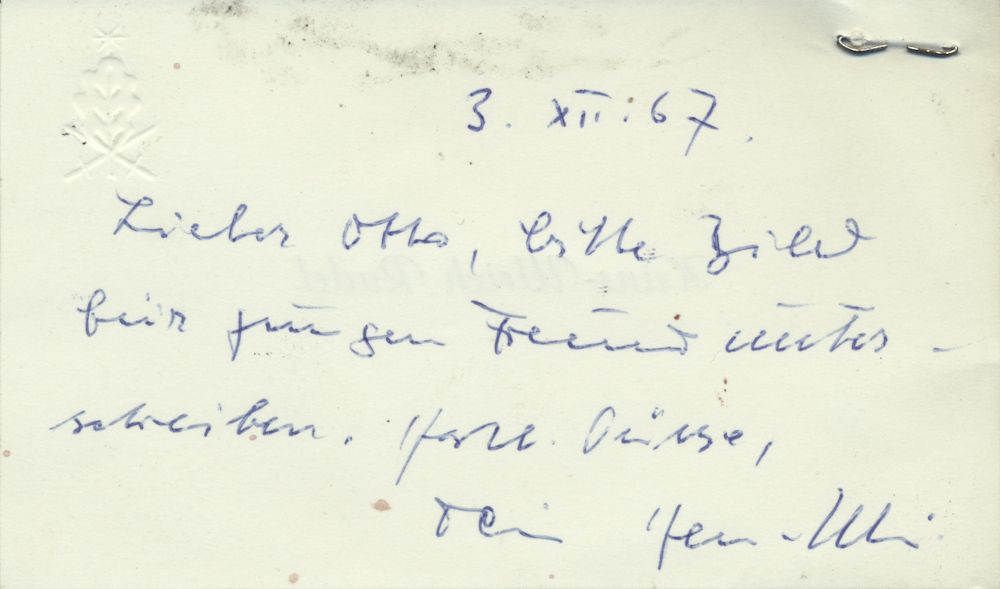 3. XII. 67.
Lieber Otto, bitte Bild
für jungen Freund unter-
schreiben. Herzl. Grüsse,
Dein Hans-Ulli